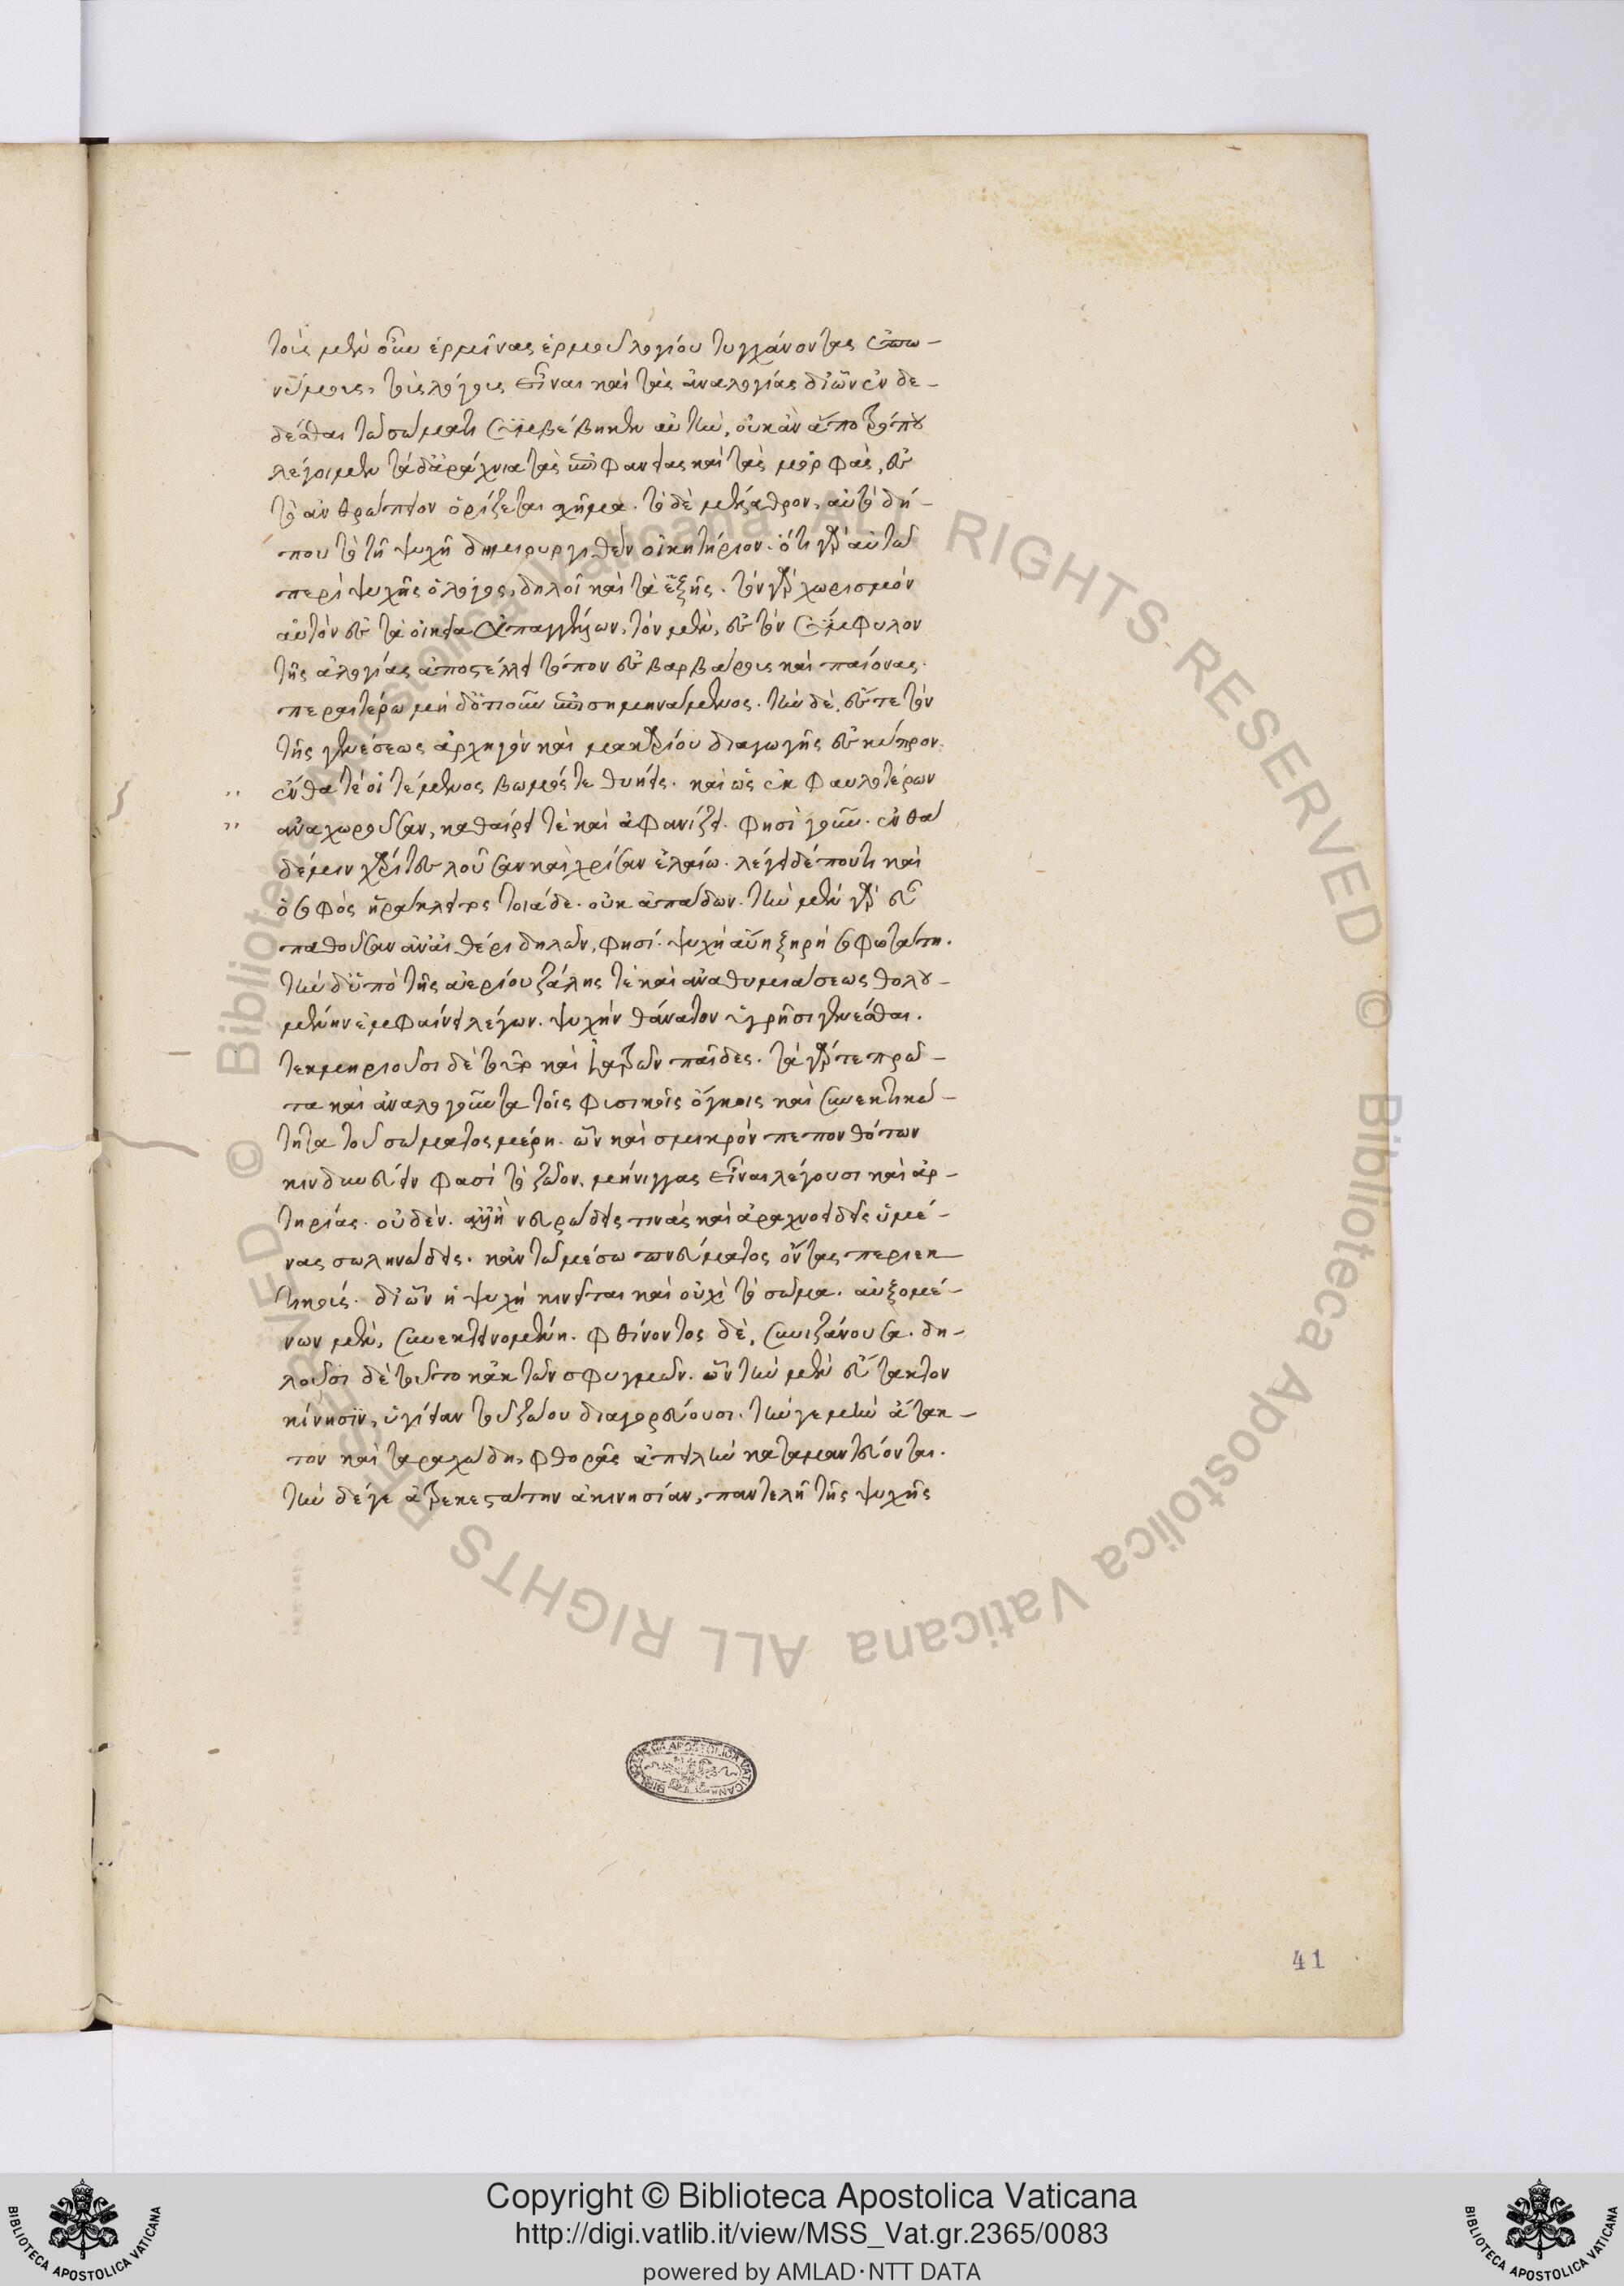 τοὺς μὲν οὖν ἑρμῖνας ἑρμοῦ λογίου τυγχάνοντας ἐπω-
νύμους, τοὺς λόγους εἶναι καὶ τὰς ἀναλογίας δι' ὧν ἐν δε-
δέσθαι τῶ σώματι συμβέβηκεν αὐτὴν, οὐκ ἂν ἄπο τρόπου
λέγοιμεν τὰ δ' ἀράχνια τὰς ὑποφάντας καὶ τὰς μορφὰς, εἰς
τὸ ἀνθρώπειον ὁρίζεται σχῆμα. τὸ δὲ μέλαθρον, αὐτὸ δή-
που τὸ τῇ ψυχῇ δημιουργηθὲν οἰκητήριον. ὅτι γὰρ αὐτῶ
περὶ ψυχῆς ὁ λόγος, δηλοῖ καὶ τὰ ἑξῆς. τὸν γὰρ χωρισμὸν
αὐτὸν εἰς τὰ οἰκεῖα ἐπαγγέλων, τὸν μὲν, εἰς τὸν σύμφυλον
τῆς ἀλογίας ἀποστέλλει τόπον εἰς βαρβάρους καὶ παίονας.
περαιτέρω μὴ δ' ὁτιοῦν ὑποσημηνάμενος. τὴν δὲ, εἴς τε τὸν
τῆς γενέσεως ἀρχηγὸν καὶ μακαρίου διαγωγῆς εἰς κύπρον.
ἔνθα τέ οἱ τέμενος βωμός τε θυήεις. καὶ ὡς ἐκ φαυλοτέρων
ἀναχωροῦσαν, καθαίρει τὲ καὶ ἀφανίζει. φησὶ γοῦν. ἔνθα
δέ μιν χάριτες λοῦσαν καὶ χρίσαν ἐλαίω. λέγει δέ που τι καὶ
ὁ σοφὸς ἡράκλειτος τοιάδε. οὐκ ἀπάδων. τὴν μὲν γὰρ εὖ
παθοῦσαν ἐν αἰθέρι δηλῶν, φησί. ψυχὴ αὔη ξηρὴ σοφωτάτη.
τὴν δ' ὑπὸ τῆς ἀερίου ζάλης τὲ καὶ ἀναθυμιάσεως θολου-
μένην ἐμφαίνει λέγων. ψυχὴν θάνατον ὑγρῆσι γενέσθαι.
τεκμηριοῦσι δὲ τοῦτο καὶ ἰατρῶν παῖδες. τὰ γάρ τε πρῶ-
τα καὶ ἀναλογοῦντα τοῖς φυσικοῖς ὄγκοις καὶ συνεκτικώ-
τατα τοῦ σώματος μέρη. ὧν καὶ σμικρὸν πεπονθότων
κινδυνεύειν φασὶ τὸ ζῶον, μήνιγγας εἶναι λέγουσι καὶ ἀρ-
τηρίας. οὐδὲν. ἀλλ' ἢ νευρώδεις τινὰς καὶ ἀραχνοειδεῖς ὑμέ-
νας σωληνώδεις. κἀν τῶ μέσω πνεύματος ὄντας περιεκ
τικούς. δι' ὧν ἡ ψυχὴ κινεῖται καὶ οὐχὶ τὸ σῶμα. αὐξομέ-
νων μὲν, συνεκτεινομένη. φθίνοντος δὲ, συνιζάνουσα. δη-
λοῦσι δὲ τοῦτο κἀκ τῶν σφυγμῶν. ὧν τὴν μὲν εὔτακτον
κίνησιν, ὑγίειαν τοῦ ζώου διαγορεύουσι. τήν γε μὴν ἄτακ-
τον καὶ ταραχώδη, φθορᾶς ἀπειλὴν καταμαντεύονται.
τὴν δέ γε ἀτρεκεστάτην ἀκινησίαν, παντελῆ τῆς ψυχῆς
41
Copyright © Biblioteca Apostolica Vaticana
http://digi.vatlib.it/view/MSS_Vat.gr.2365/0083
powered by AMLAD·NTT DATA